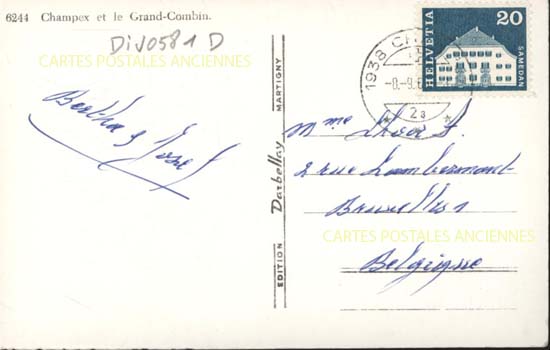 6244 Champex et le Grand-Combin.
DIV0581 D
CARTES POSTALES ANCIENNES
Bertha & José
EDITION Darbellay MARTIGNY
HELVETIA
20
SAMEDAN
1938 CH
-8.-9.6
2a
Mme
2 rue Lambermont
Bruxelles 1
CARTES POSTALES ANCIENNES
Belgique